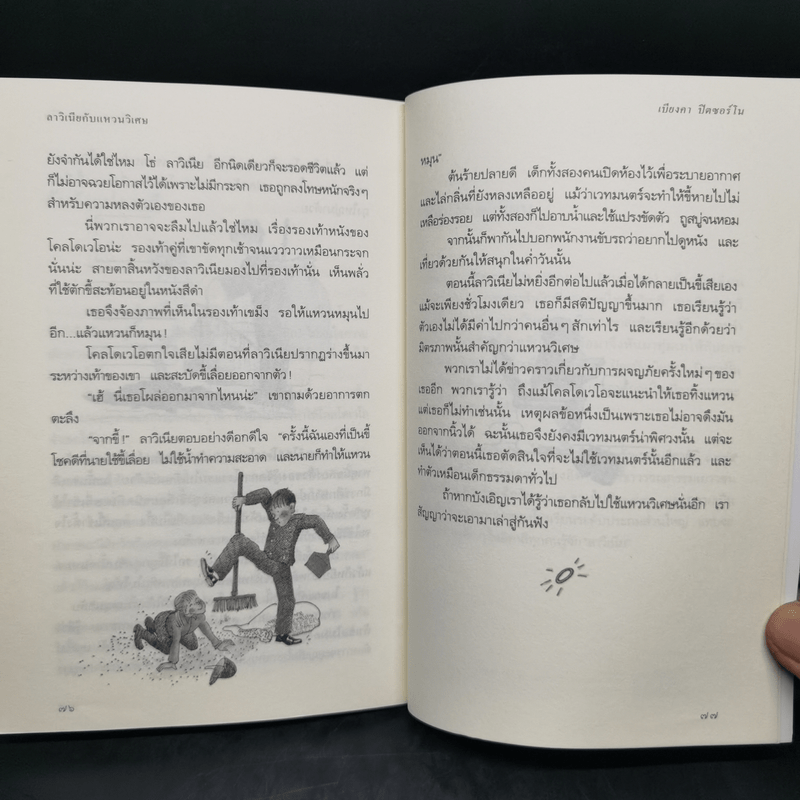 ลาวิเนียกับแหวนวิเศษ
ยังจำกันได้ใช่ไหม โธ่ ลาวิเนีย อีกนิดเดียวก็จะรอดชีวิตแล้ว แต่
ก็ไม่อาจฉวยโอกาสไว้ได้เพราะไม่มีกระจก เธอถูกลงโทษหนักจริงๆ
สำหรับความหลงตัวเองของเธอ
นี่พวกเราอาจจะลืมไปแล้วใช่ไหม เรื่องรองเท้าหนังของ
โคลโดเวโอน่ะ รองเท้าคู่ที่เขาขัดทุกเช้าจนแวววาวเหมือนกระจก
นั่นน่ะ สายตาสิ้นหวังของลาวิเนียมองไปที่รองเท้านั่น เห็นพลั่ว
ที่ใช้ตักขี้สะท้อนอยู่ในหนังสีดำ
เธอจึงจ้องภาพที่เห็นในรองเท้าเขม็ง รอให้แหวนหมุนไป
อีก...แล้วแหวนก็หมุน!
โคลโดเวโอตกใจเสียไม่มีตอนที่ลาวิเนียปรากฏร่างขึ้นมา
ระหว่างเท้าของเขา และสะบัดขี้เลื่อยออกจากตัว!
“เฮ้ นี่เธอโผล่ออกมาจากไหนน่ะ” เขาถามด้วยอาการตก
ตะลึง
“จากขี้!” ลาวิเนียตอบอย่างดีอกดีใจ “ครั้งนี้ฉันเองที่เป็นขี้
โชคดีที่นายใช้ขี้เลื่อย ไม่ใช้น้ำทำความสะอาด และนายก็ทำให้แหวน
๗๖
เบียงคา ปิตซอร์โน
หมุน”
ต้นร้ายปลายดี เด็กทั้งสองคนเปิดห้องไว้เพื่อระบายอากาศ
และไล่กลิ่นที่ยังหลงเหลืออยู่ แม้ว่าเวทมนตร์จะทำให้ขี้หายไปไม่
เหลือร่องรอย แต่ทั้งสองก็ไปอาบน้ำและใช้แปรงขัดตัว ถูสบู่จนหอม
จากนั้นก็พากันไปบอกพนักงานขับรถว่าอยากไปดูหนัง และ
เที่ยวด้วยกันให้สนุกในค่ำวันนั้น
ตอนนี้ลาวิเนียไม่หยิ่งอีกต่อไปแล้วเมื่อได้กลายเป็นขี้เสียเอง
แม้จะเพียงชั่วโมงเดียว เธอก็มีสติปัญญาขึ้นมาก เธอเรียนรู้ว่า
ตัวเองไม่ได้มีค่าไปกว่าคนอื่นๆ สักเท่าไร และเรียนรู้อีกด้วยว่า
มิตรภาพนั้นสำคัญกว่าแหวนวิเศษ
พวกเราไม่ได้ข่าวคราวเกี่ยวกับการผจญภัยครั้งใหม่ๆ ของ
เธออีก พวกเรารู้ว่า ถึงแม้โคลโดเวโอจะแนะนำให้เธอทิ้งแหวน
แต่เธอก็ไม่ทำเช่นนั้น เหตุผลข้อหนึ่งเป็นเพราะเธอไม่อาจดึงมัน
ออกจากนิ้วได้ ฉะนั้นเธอจึงยังคงมีเวทมนตร์น่าพิศวงนั้น แต่จะ
เห็นได้ว่าตอนนี้เธอตัดสินใจที่จะไม่ใช้เวทมนตร์นั้นอีกแล้ว และ
ทำตัวเหมือนเด็กธรรมดาทั่วไป
ถ้าหากบังเอิญเราได้รู้ว่าเธอกลับไปใช้แหวนวิเศษนั่นอีก เรา
สัญญาว่าจะเอามาเล่าสู่กันฟัง
๗๗